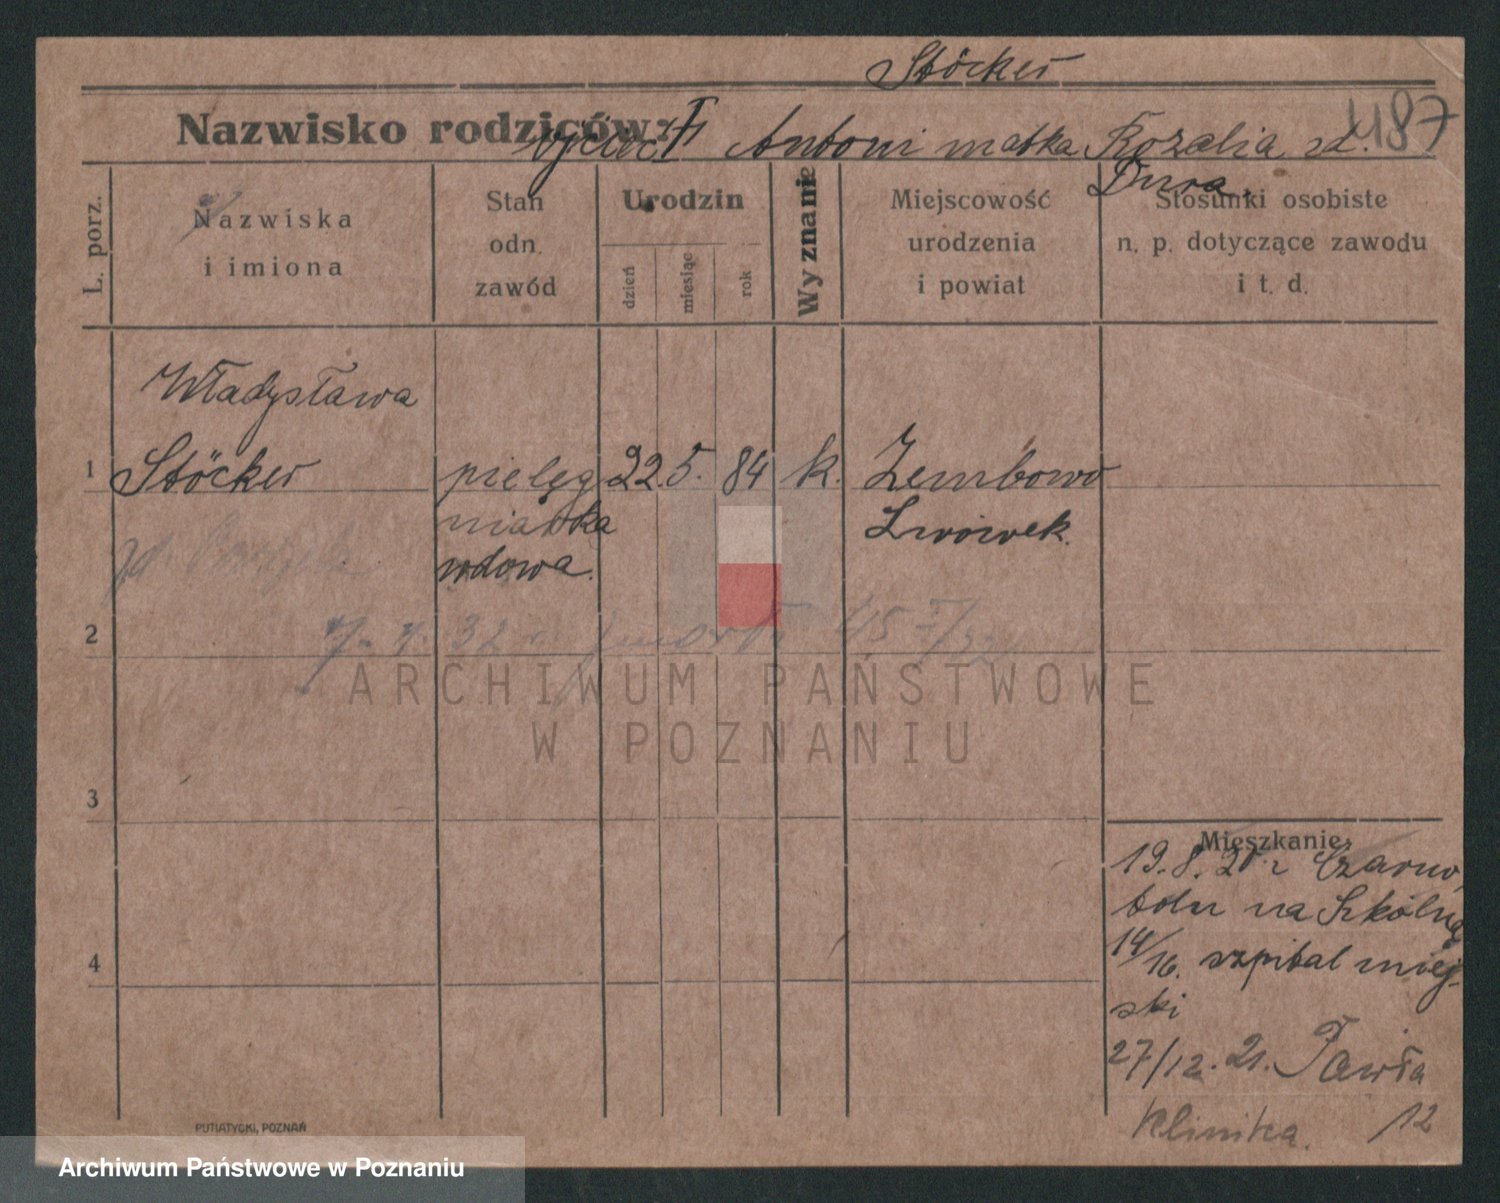 Stöcker
Nazwisko rodziców: ojciec Antoni matka Rozalia zd. 1187
Dura
L. porz.
Nazwiska
i imiona
Stan
odn.
zawód
Urodzin
dzień
miesiąc
rok
Wyznanie
Miejscowość
urodzenia
i powiat
Stosunki osobiste
n. p. dotyczące zawodu
i t. d.
Władysława
1 Stöcker pielęg 22. 5. 84 k. Zembowo
niarka Lwówek.
wdowa.
2 32 r.
3
4
Mieszkanie:
19.8.21 r Czarno
dolu na Szkólną
14/16. szpital miej-
ski
27/12. 21. Pawła
Klinika. 12
PUTIATYCKI, POZNAŃ
ARCHIWUM PAŃSTWOWE
W POZNANIU
Archiwum Państwowe w Poznaniu